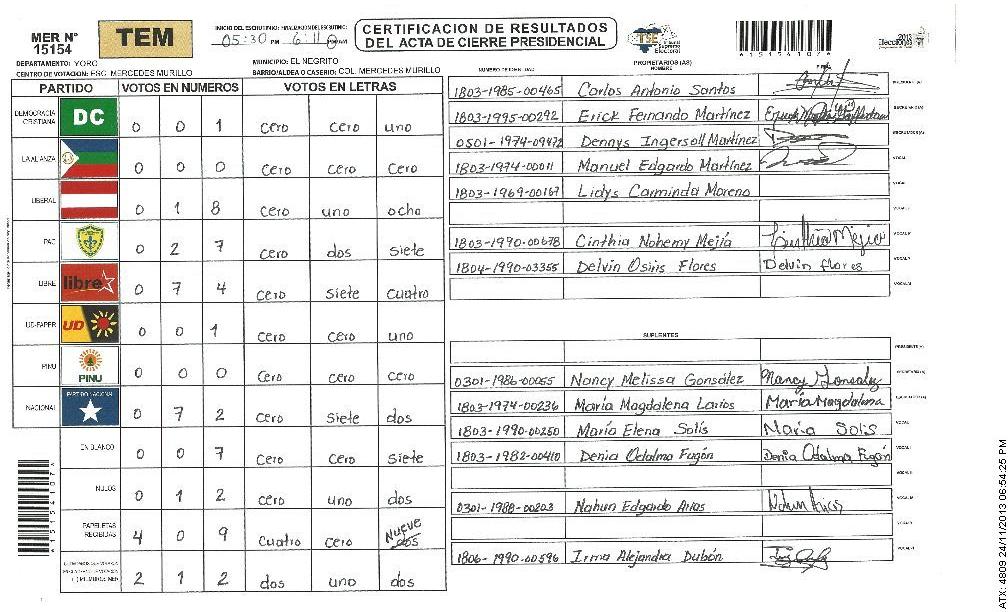 MER N° 15154
TEM
INICIO DEL ESCRUTINIO: FINALIZACION DEL ESCRUTINIO:
05:30 PM 6:11
CERTIFICACION DE RESULTADOS
DEL ACTA DE CIERRE PRESIDENCIAL
TSE Tribunal Supremo Electoral
A15154107A
2013 Elecciones
DEPARTAMENTO: YORO
MUNICIPIO: EL NEGRITO
CENTRO DE VOTACION: ESC. MERCEDES MURILLO
BARRIO/ALDEA O CASERIO: COL. MERCEDES MURILLO
PARTIDO VOTOS EN NUMEROS VOTOS EN LETRAS
DEMOCRACIA CRISTIANA DC 0 0 1 cero cero uno
LA ALIANZA 0 0 0 cero cero cero
LIBERAL 0 1 8 cero uno ocho
PAC 0 2 7 cero dos siete
LIBRE libre 0 7 4 cero siete cuatro
UD-FAPER UD 0 0 1 cero cero uno
PINU PINU 0 0 0 cero cero cero
NACIONAL PARTIDO NACIONAL 0 7 2 cero siete dos
EN BLANCO 0 0 7 cero cero siete
NULOS 0 1 2 cero uno dos
PAPELETAS RECIBIDAS 4 0 9 cuatro cero Nueve dos
2 1 2 dos uno dos
A15154107A
PROPIETARIOS (AS)
NUMERO DE IDENTIDAD NOMBRE
1803-1985-00465 Carlos Antonio Santos PRESIDENTE (A)
1803-1995-00292 Erick Fernando Martínez SECRETARIO (A)
0501-1974-09472 Dennys Ingersoll Martínez ESCRUTADOR (A)
1803-1974-00011 Manuel Edgardo Martínez VOCAL I
1803-1969-00167 Lidys Carminda Moreno
1803-1990-00678 Cinthia Nohemy Mejía Cinthia Mejia
1804-1990-03355 Delvin Osiris Flores Delvin flores
SUPLENTES
PRESIDENTE (A)
0301-1986-00055 Nancy Melissa Gonsález Nancy Gonsalez SECRETARIO (A)
1803-1974-00236 María Magdalena Larios María Magdalena ESCRUTADOR (A)
1803-1990-00250 María Elena Solís María Solis
1803-1982-00410 Denia Odalma Fugón Denia Odalma Fugón
0301-1988-00203 Nahun Edgardo Arias Nahun Arias
1806-1990-00596 Irma Alejandra Dubón
ATX: 4809 24/11/2013 06:54:25 PM